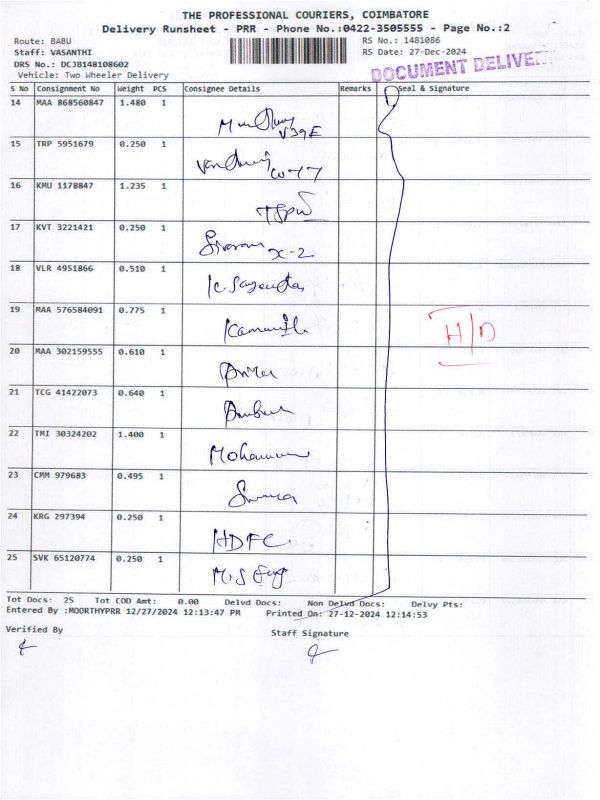 THE PROFESSIONAL COURIERS, COIMBATORE
Delivery Runsheet - PRR - Phone No.:0422-3505555 - Page No.:2
Route: BABU RS No.: 1481086
Staff: VASANTHI RS Date: 27-Dec-2024
DRS No.: DCJB148108602
DOCUMENT DELIVE
Vehicle: Two Wheeler Delivery
S No Consignment No Weight PCS Consignee Details Remarks Seal & Signature
14 MAA 868560847 1.480 1
15 TRP 5951679 0.250 1
16 KMU 1178847 1.235 1
17 KVT 3221421 0.250 1 x-2
18 VLR 4951866 0.510 1
19 MAA 576584091 0.775 1
H/D
20 MAA 302159555 0.610 1
21 TCG 41422073 0.640 1
22 TMI 30324202 1.400 1
23 CMM 979683 0.495 1
24 KRG 297394 0.250 1 HDFC
25 SVK 65120774 0.250 1
Tot Docs: 25 Tot COD Amt: 0.00 Delvd Docs: Non Delvd Docs: Delvy Pts:
Entered By :MOORTHYPRR 12/27/2024 12:13:47 PM Printed On: 27-12-2024 12:14:53
Verified By Staff Signature